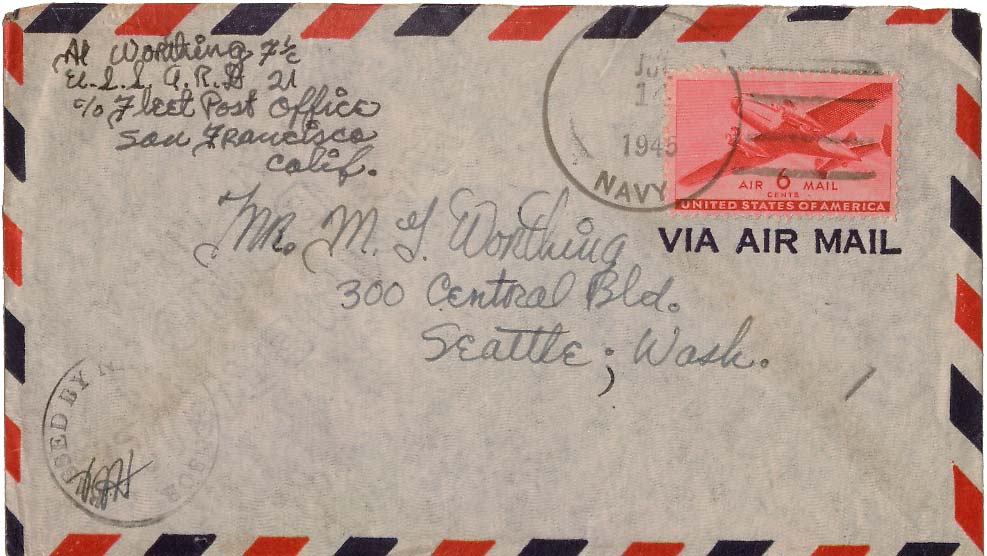 Al Worthing F 1/c
U.S.S. A.R.D 21
c/o Fleet Post Office
San Francisco
Calif.
1945
NAVY
AIR 6 MAIL
CENTS
UNITED STATES OF AMERICA
VIA AIR MAIL
Mr. M. G. Worthing
300 Central Bld.
Seattle; Wash.
SSED BY N